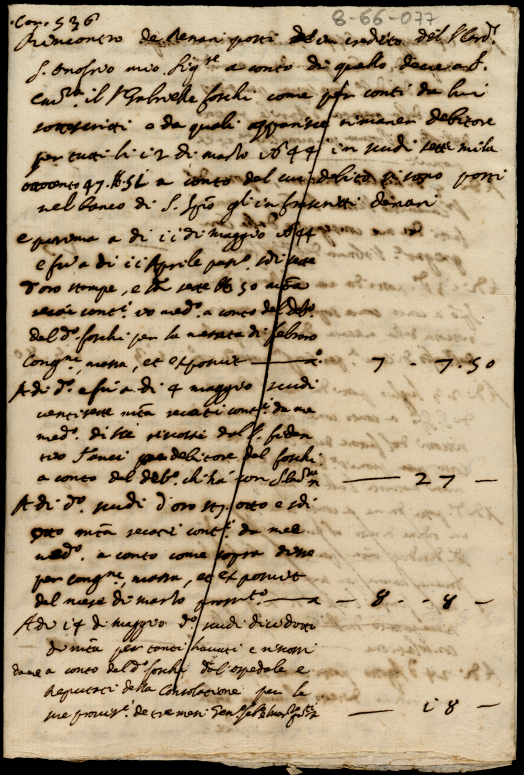 Con. 536
8-66-077
Rincontro de denari posti in credito del S. Card.
S. Onofrio mio Sig.re a conto di quello deve a S.
il S. Gabrielle foschi come per conti da lui
sottoscritti e da quali apparisce rimaner debitore
per tutti li 12 di marzo 1644 in scudi sette mila
ottocento 47. 51 a conto del cui debito si sono posti
nel banco di S. Spto gl'infrascritti denari
e prima a di 11 di maggio 1644
e fu a di 11 Aprile scudi sette
d'oro stampe, e scudi sette 50 mta
recati cont. io med.o a conto del deb.o
del d.o foschi per la mesata di febraro
Congni, moneta, et exposuit 7 - 7.50
A di d.o e fu a di 4 maggio scudi
ventisette mta recati cont. da me
med.o disse riscossi dal S. fiden
tio debitore del foschi
a conto del deb.o chi ha con S. 27 -
A di d.o scudi d'oro otto e scudi
otto mta recati cont. da me
med.o a conto come sopra disse
per congni, moneta, et exposuit
del mese di marzo 8 - 8 -
A di 14 di maggio d.o scudi dicidotto
di mta per conti havuti e riscossi
da me a conto del d.o foschi dal'ospedale e
Deputati della Consolatione per le
sue provis.i de tre mesi 18 -